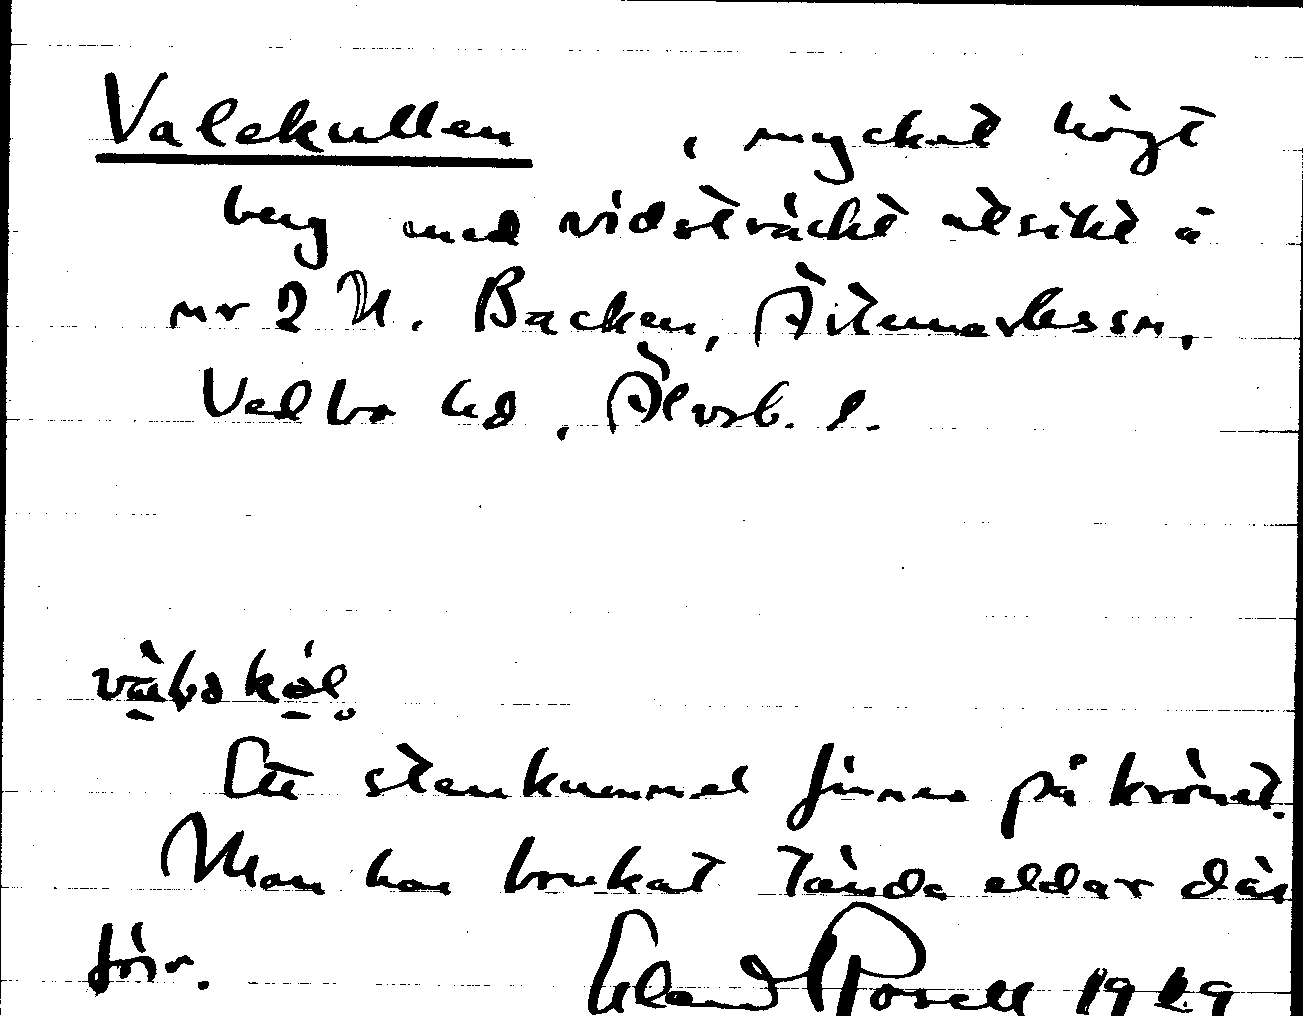 Valekullen, mycket högt
berg med vidsträckt utsikt å
nr 2 N. Backen, Ärtemarks sn,
Vedbo hd, Älvsb. l.
Ett stenkummel finnes på krönet.
Man har brukat tända eldar där
förr. Erland Rosell 1929